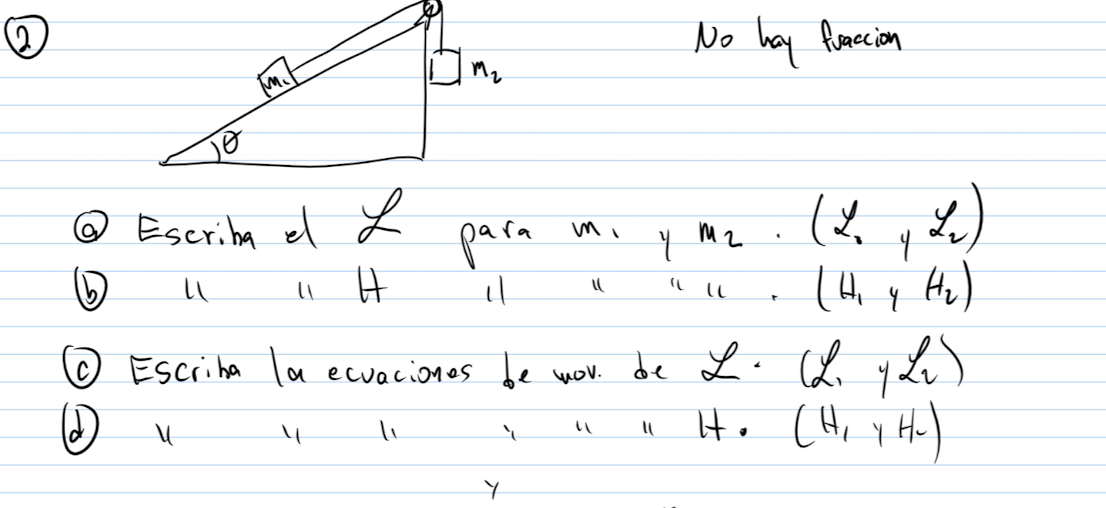 2 No hay fraccion
m₁ m₂
θ
a Escriba el ℒ para m₁ y m₂. (ℒ₁ y ℒ₂)
b " " H " " " ". (H₁ y H₂)
c Escriba la ecuaciones de mov. de ℒ. (ℒ₁ y ℒ₂)
d " " " " " " H. (H₁ y H₂)
y